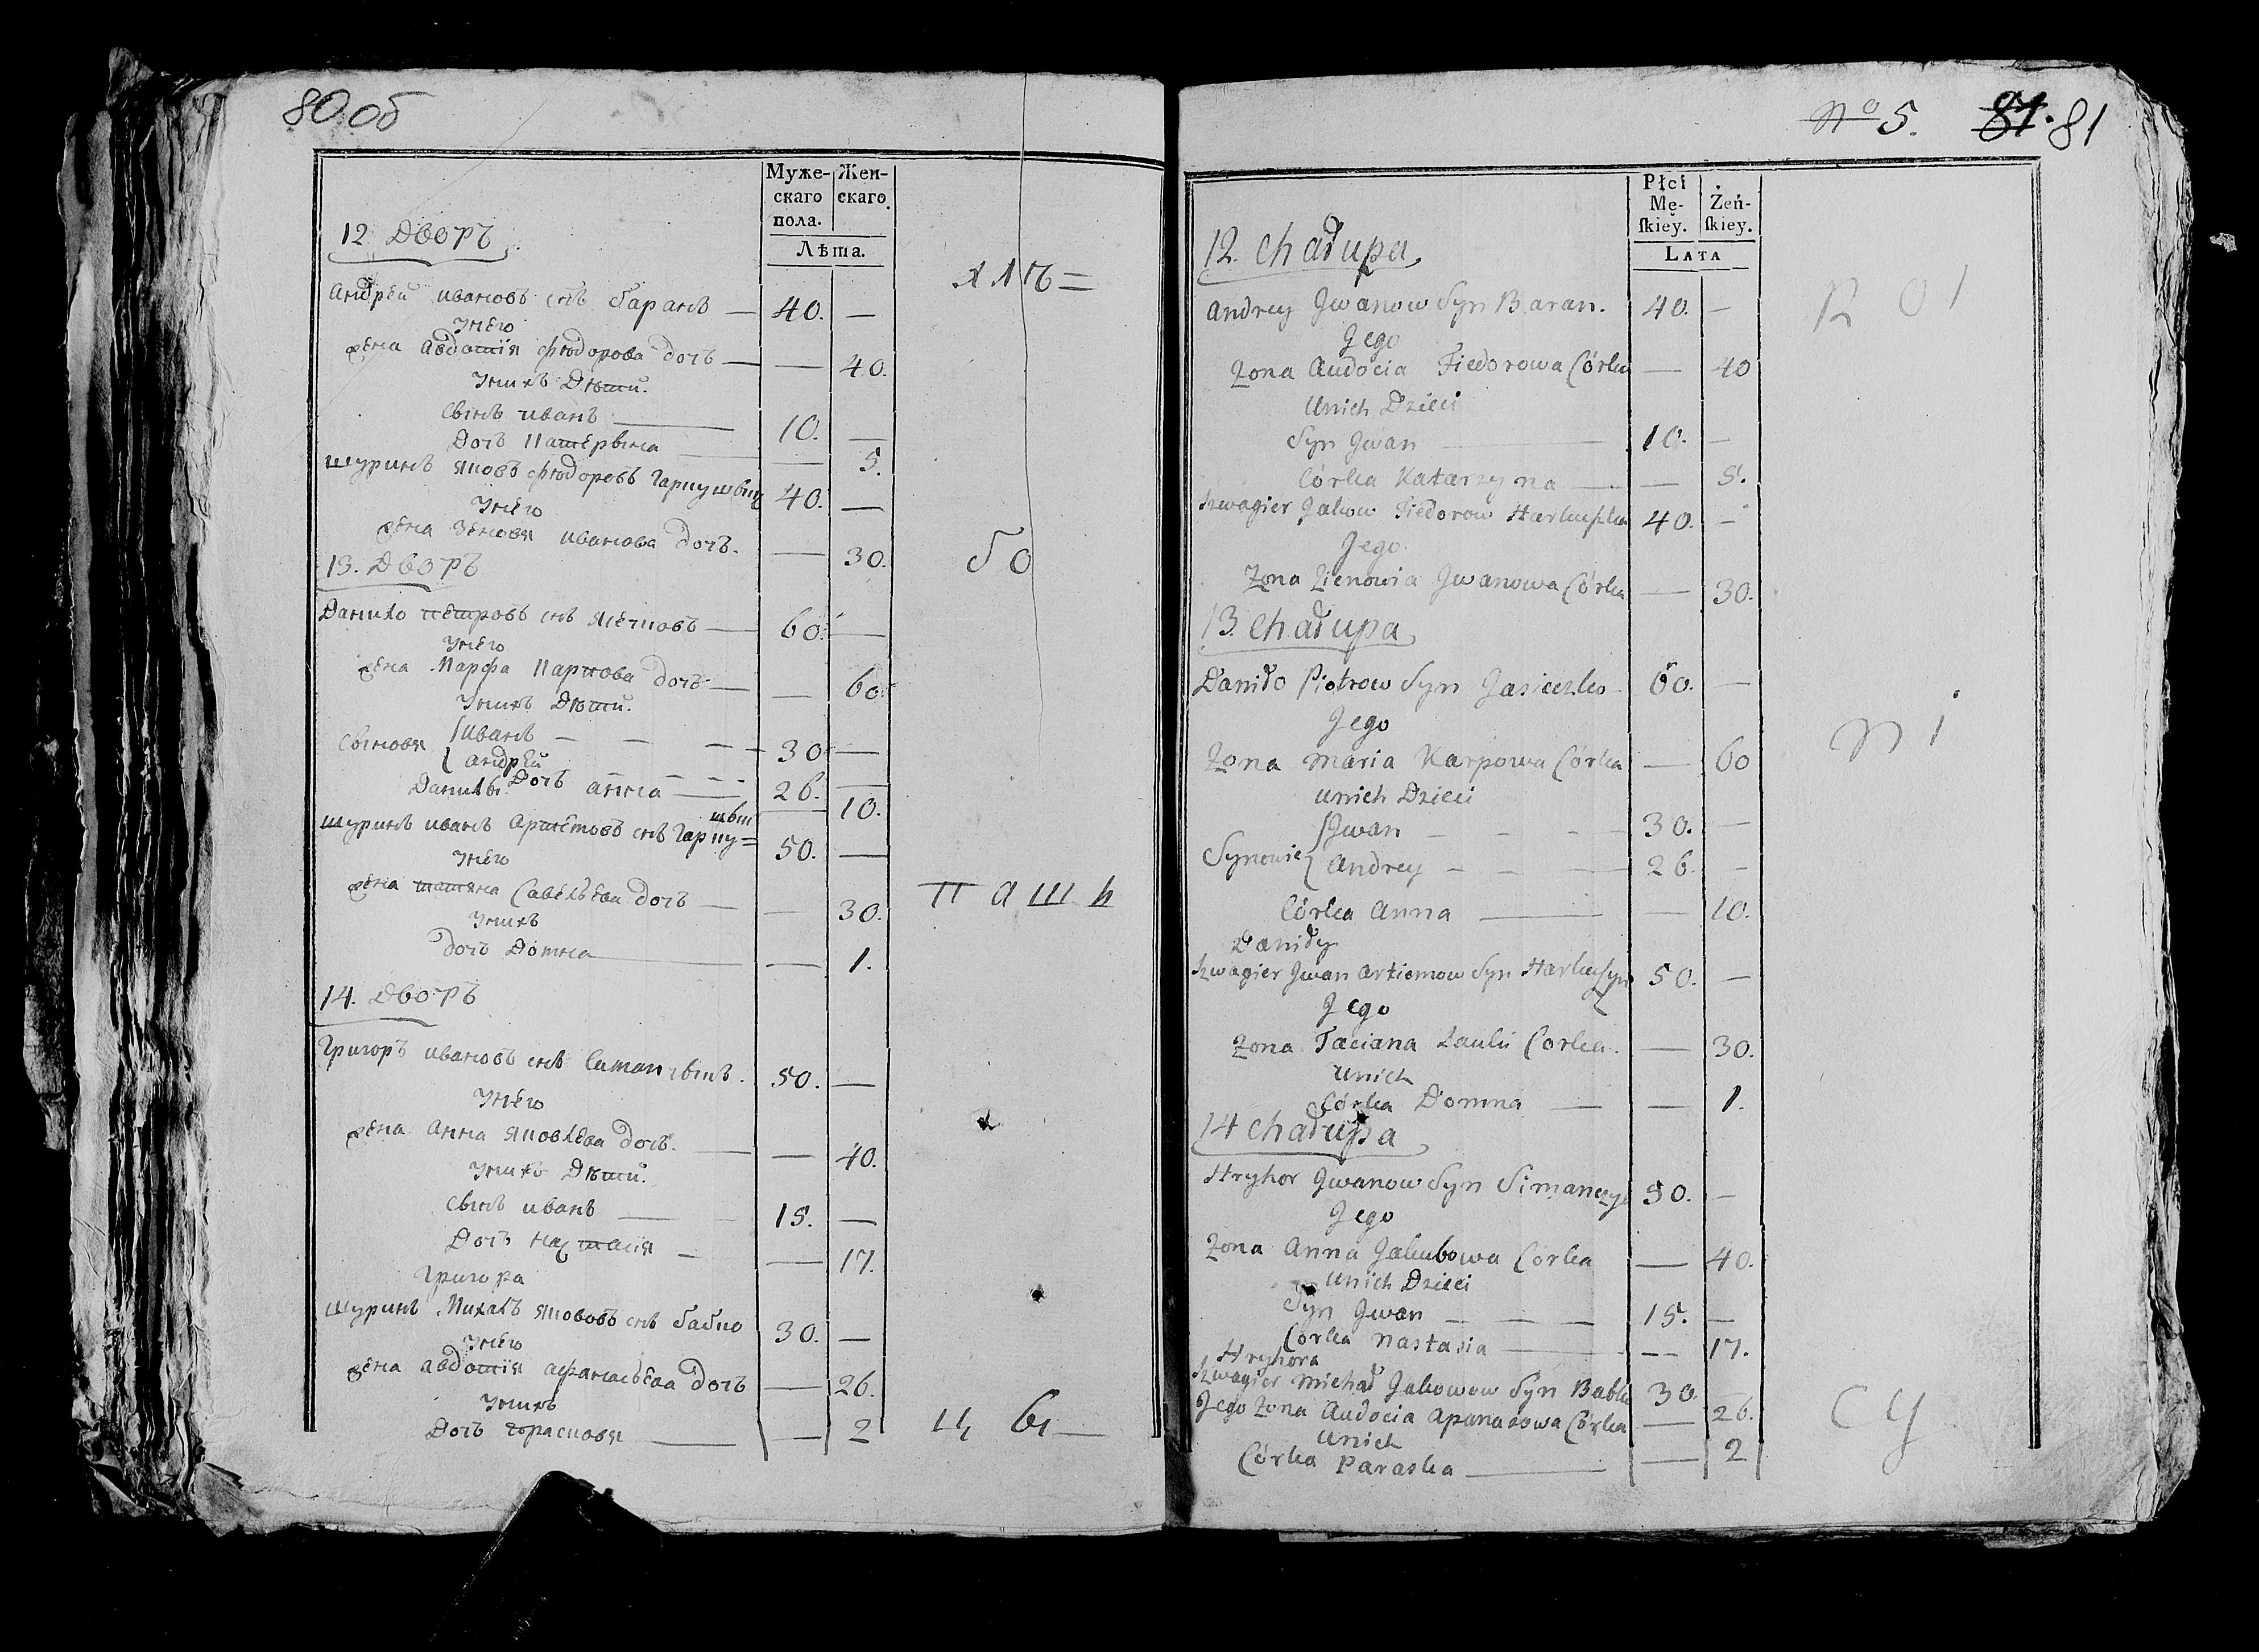 80 об
Муже-
скаго
пола.
Жен-
скаго.
Лѣта.
12 Дворъ
Андрей Ивановъ снъ Баранъ — 40. —
У него
жена Авдотія Фюдорова дочь — — 40.
У нихъ Дѣти.
Сынъ Иванъ — 10. —
Дочь Катерына — — 5.
Шуринъ Яковъ Фюдоровъ 40. —
У него
жена Зеновя Иванова дочь. — 30.
13. Дворъ
Данило Петровъ снъ — 60. —
У него
жена Марфа Карпова дочь — — 60
У нихъ Дѣти.
Сыновя { Иванъ — — — 30 —
{ Андрей — — 26. —
Данилы Дочь Анна — — 10.
Шуринъ Иванъ снъ 50. —
У него
жена Татяна Савельева дочь — — 30.
У нихъ
дочь Домна — — 1.
14. Дворъ
Григоръ Ивановъ снъ 50. —
У него
жена Анна Яковлева дочь. — — 40.
У нихъ Дѣти.
Сынъ Иванъ — 15. —
Дочь Настасія — — 17.
Григора
Шуринъ Михалъ Якововъ снъ Бабко 30. —
У него
жена Авдотія Афанасьева дочь — 26.
У нихъ
Дочь — — 2
бо
п а ш и
ц ы —
№ 5. 81. 81
Płci
Mę-
ſkiey.
Żeń-
ſkiey.
Lata
12. Chałupa
Andrey Jwanow Syn Baran. 40. —
Jego
Zona Audocia Fiedorowa Córka — 40
Unich Dzieci
Syn Jwan — 10. —
Córka Katarzyna — — 5.
Szwagier Jakow Fiedorow Harkuszka 40. —
Jego
Zona Zienowia Jwanowa Córka — 30.
13. Chałupa
Daniło Piotrow Syn Jasieczko 60. —
Jego
Zona Maria Karpowa Córka — 60
Unich Dzieci
Synowie { Jwan — — — 30. —
{ Andrey — — — 26 —
Córka Anna — — 10.
Daniły
Szwagier Jwan Artiemow Syn 50. —
Jego
Zona Taciana Córka. — 30.
Unich
Córka Domna — — 1.
14 Chałupa
Hryhor Jwanow Syn Simanczyk 50. —
Jego
Zona Anna Jakubowa Córka — 40.
Unich Dzieci
Syn Jwan — — — 15. —
Córka Nastasia — — 17.
Hryhora
Szwagier Michał Jakowow Syn Babko 30 —
Jego Zona Audocia Apanasowa Córka — 26.
Unich
Córka Paraska — — 2
n i